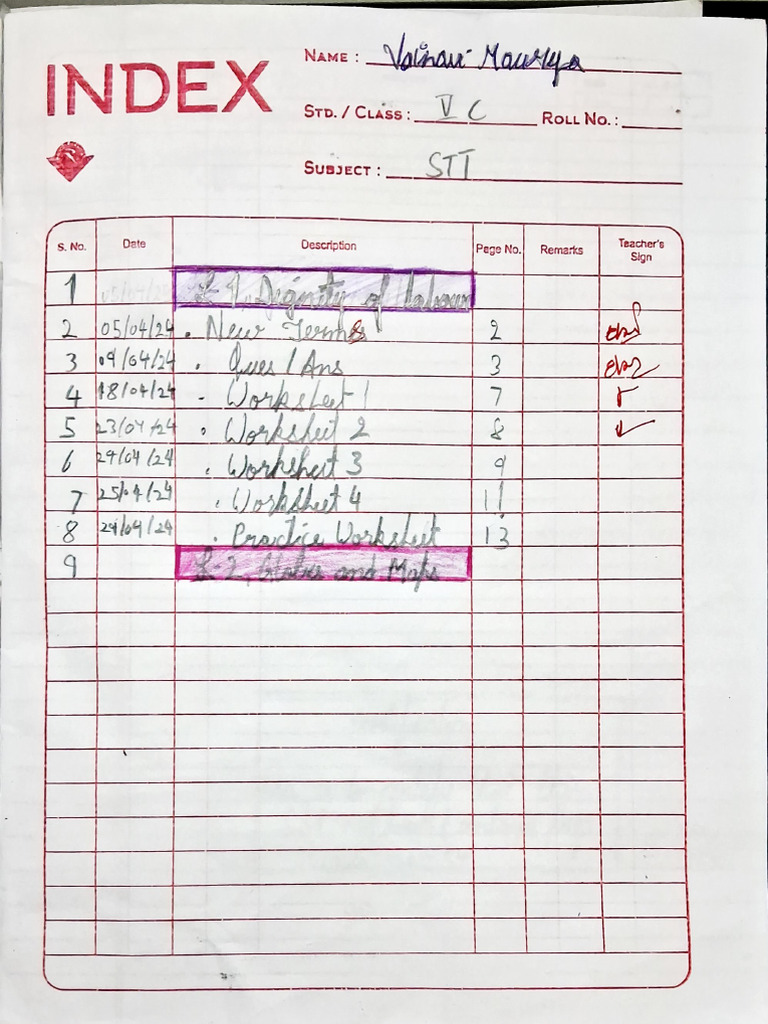 INDEX
NAME : Vaihavi Maurya
STD. / CLASS : V C ROLL NO. :
SUBJECT : STT
S. No. Date Description Page No. Remarks Teacher's Sign
1 05/04/24 L-1, Deginity of labour
2 05/04/24 . New Terms 2
3 09/04/24 . Ques/Ans 3
4 18/04/24 - Worksheet 1 7
5 23/04/24 . Worksheet 2 8
6 24/04/24 . Worksheet 3 9
7 25/4/24 . Worksheet 4 11
8 29/04/24 . Practice Worksheet 13
9 L-2, Globes and Maps